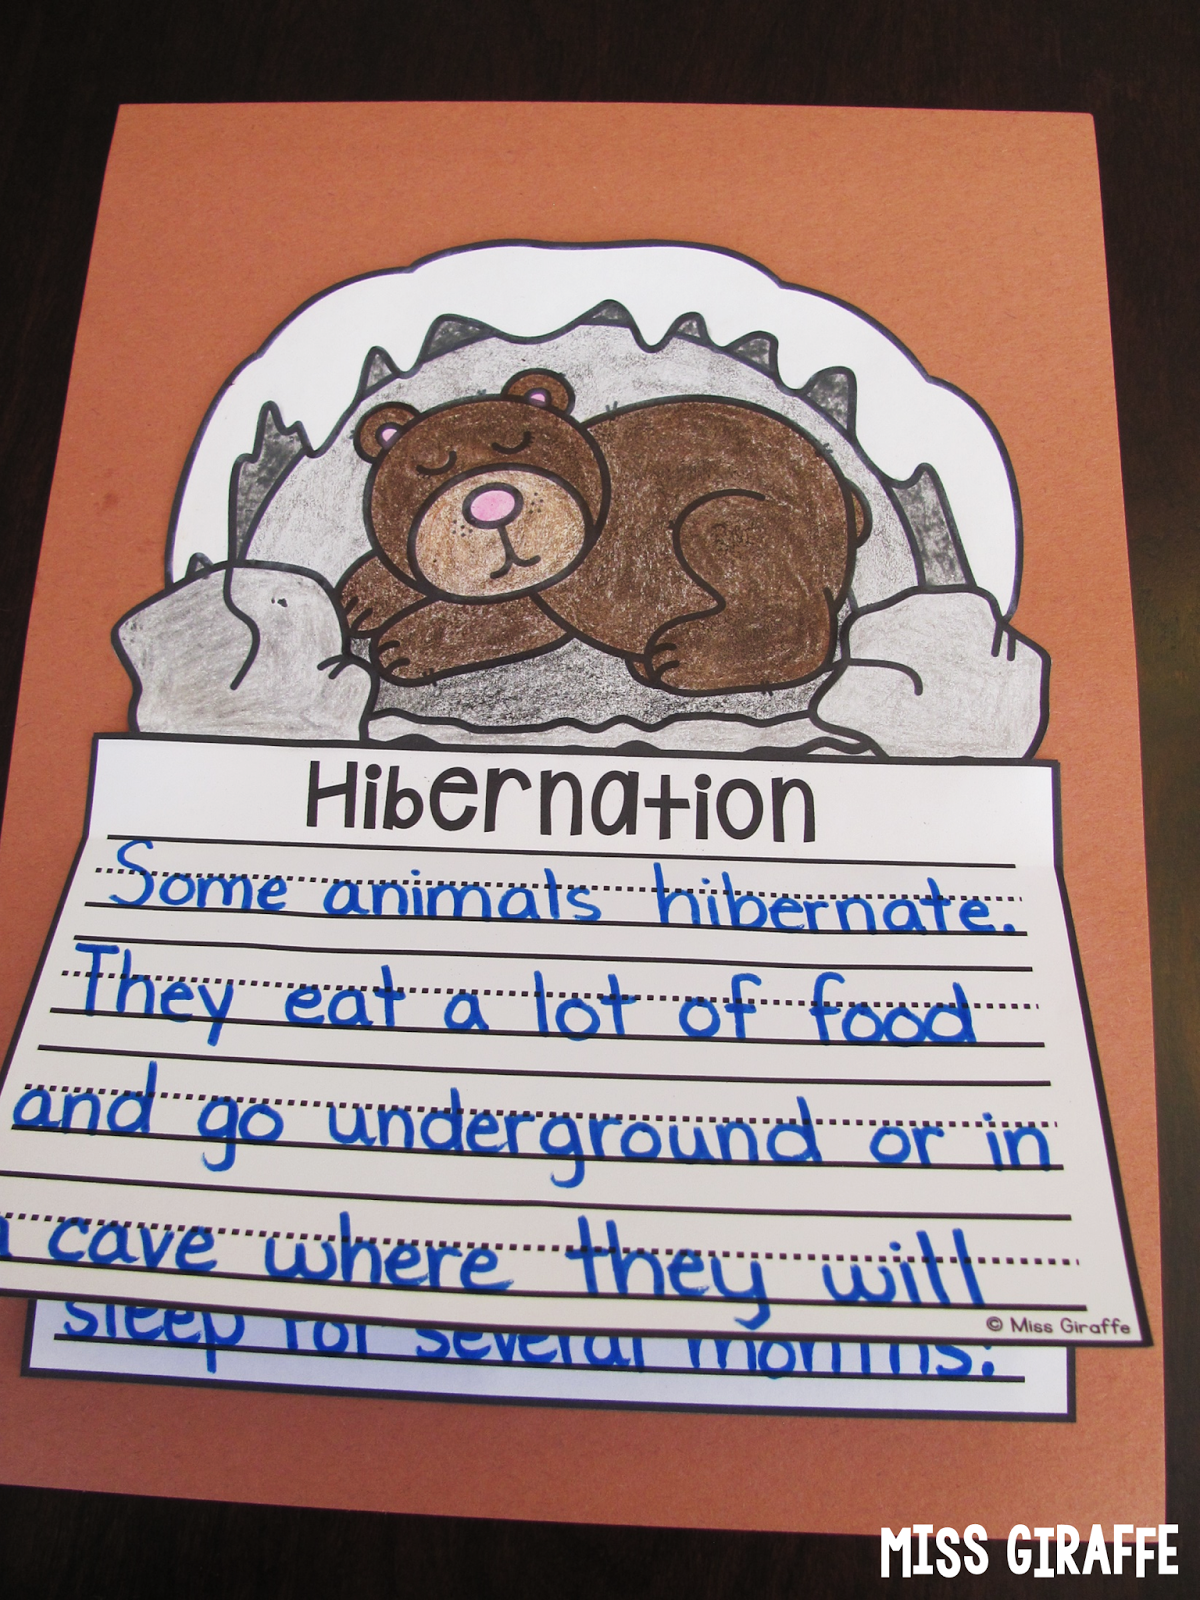 Hibernation
Some animals hibernate.
They eat a lot of food
and go underground or in
a cave where they will
© Miss Giraffe
sleep for several months.
MISS GIRAFFE